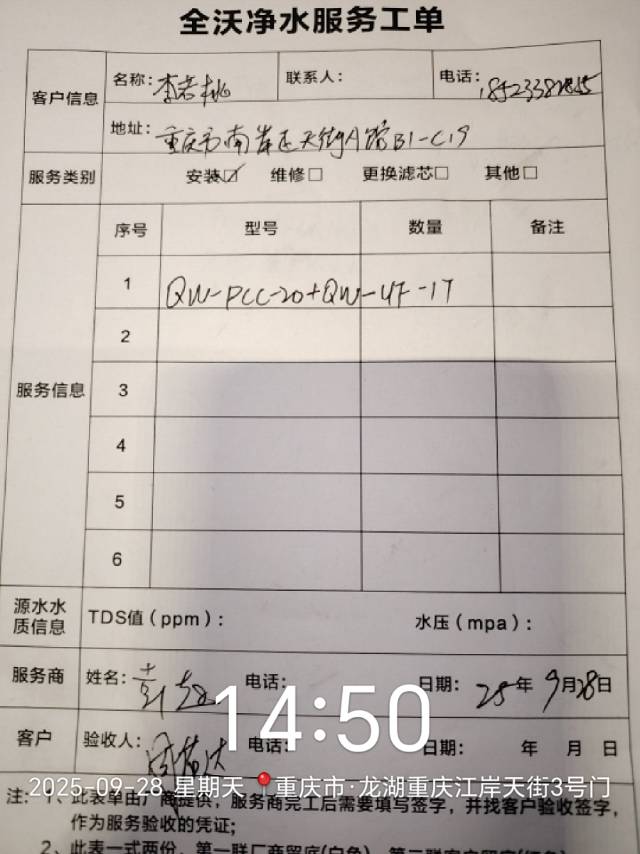 全沃净水服务工单
客户信息
名称：李若桃 联系人： 电话：
地址：重庆市南岸区天街A馆B1-C19
服务类别 安装☑ 维修□ 更换滤芯□ 其他□
服务信息
序号 型号 数量 备注
1 QW-PCC-20+QW-UF-1T
2
3
4
5
6
源水水质信息 TDS值（ppm）： 水压（mpa）：
服务商 姓名： 电话： 日期：25年9月28日
客户 验收人： 电话： 日期： 年 月 日
14:50
2025-09-28 星期天 重庆市·龙湖重庆江岸天街3号门
注：1、此表单由厂商提供，服务商完工后需要填写签字，并找客户验收签字，
作为服务验收的凭证；
2、此表一式两份，第一联厂商留底(白色)，第二联客户留底(红色)